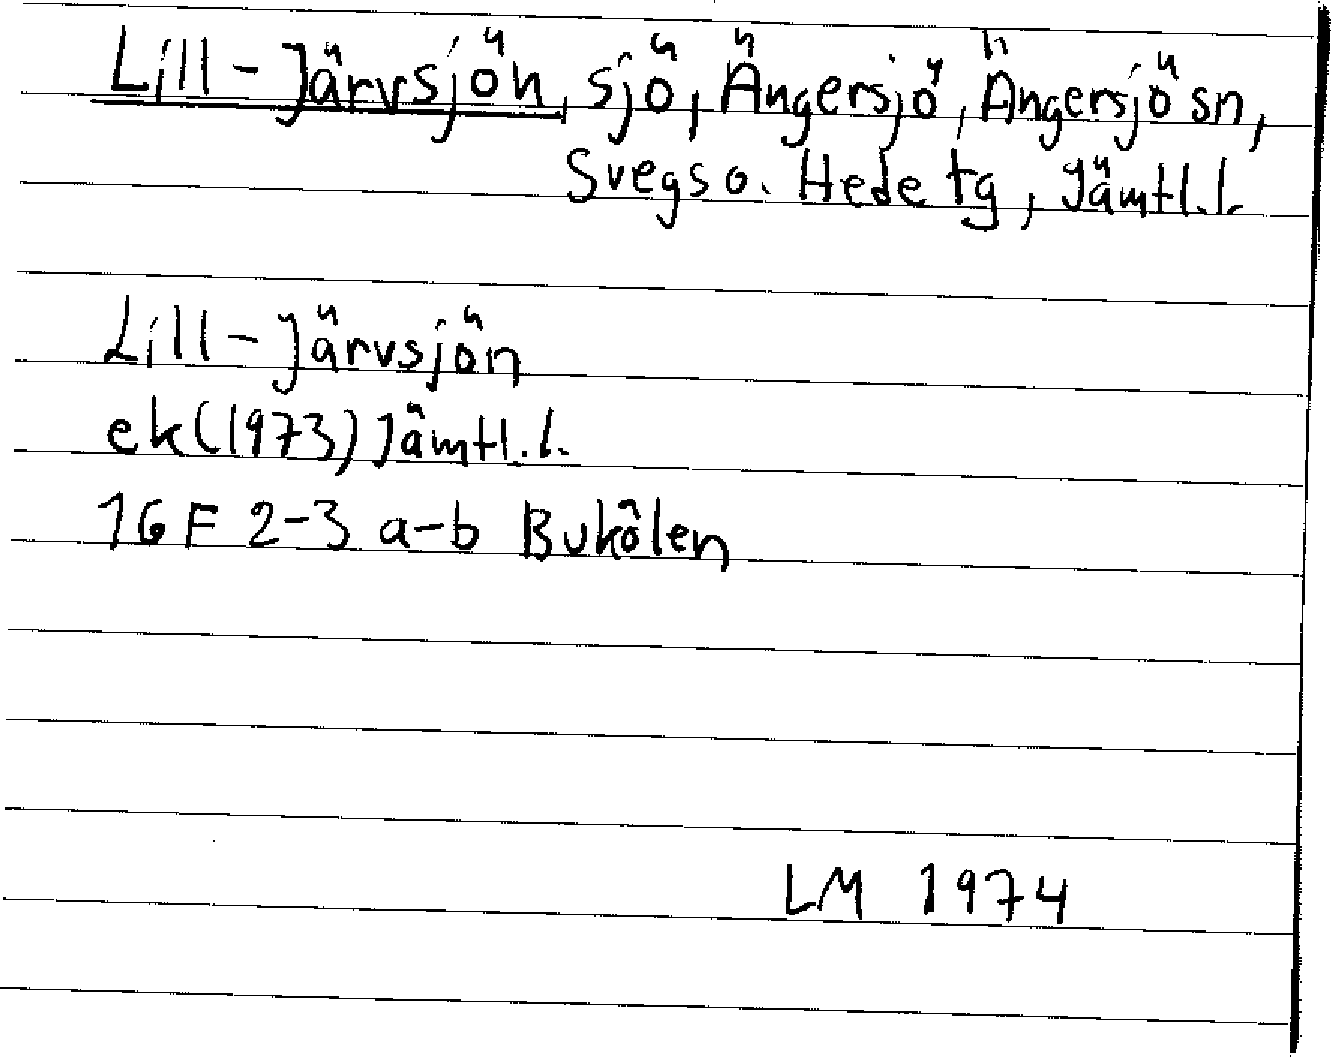 Lill-Järvsjön, sjö, Ängersjö, Ängersjö sn,
Svegs o. Hede tg, Jämtl.l.
Lill-Järvsjön
ek (1973) Jämtl.l.
16 F 2-3 a-b Bukölen
LM 1974